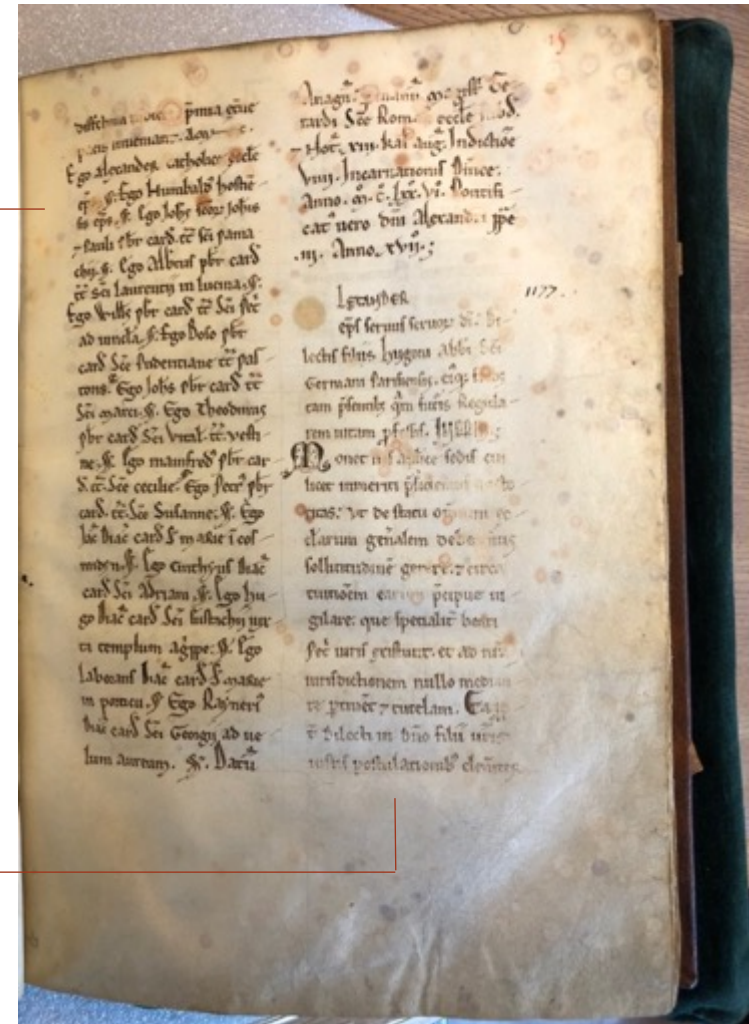 15
districti iudicis premia eterne
pacis inueniant. amen.
Ego alexander catholice eccle
eps. S. Ego Humbald' hostie-
sis eps. S. Ego Johs scor Johis
⁊ Pauli pbr card. tt sci pama
chii. S. Ego Albtus pbr card
tt Sci laurentii in lucina. S.
Ego Wills pbr card tt Sci Pet
ad uincla. S. Ego Boso pbr
card Sce Pudentiane tt pas-
toris. Ego Johs pbr card tt
Sci marci. S. Ego Theodinus
pbr card Sci Vital. tt. vesti-
ne. S. Ego manfred' pbr car
d. tt. Sce cecilie. Ego Petr' pbr
card. tt. Sce Susanne. S. Ego
Iac diac card S marie i cos-
miden. S. Ego cinthyus diac
card Sci Adriani. S. Ego hu-
go diac card Sci Eustachii iux
ta templum agppe. S. Ego
laborans diac card S marie
in porticu. S Ego Rayneri'
diac card Sci Georgii ad ue
lum aureum. S. Datum
Anagn. manum Ge-
rardi Sce Rom. eccle
Not. viii. kal aug. Indictioe
viiii. Incarnationis Dnice.
Anno. m. c. lxx. vi. Pontifi-
cat' uero dni Alexandri ppe
.iii. Anno. xvii. ;
LEXANDER 1177.
eps seruus seruor di. Di-
lectis filiis hugoni abbi Sci
Germani Parisiensis. eiq;
tam psentib; qm futuris Regula-
rem uitam pfessis. IN PPM ;
Monet nos aplice sedis cui
licet inmeriti psidemus aucto
ritas: ut de statu omnium ec-
clesiarum genalem debeamus
sollicitudine gerere. ⁊ circa
tuitioem earum pcipue ui-
gilare. que specialit' beati
Pet' iuris existunt. et ad nram
iurisdictionem nullo media-
te ptinet ⁊ tutelam. Ea pp-
t' dilecti in Dno filii uris
iustis postulationib' clement